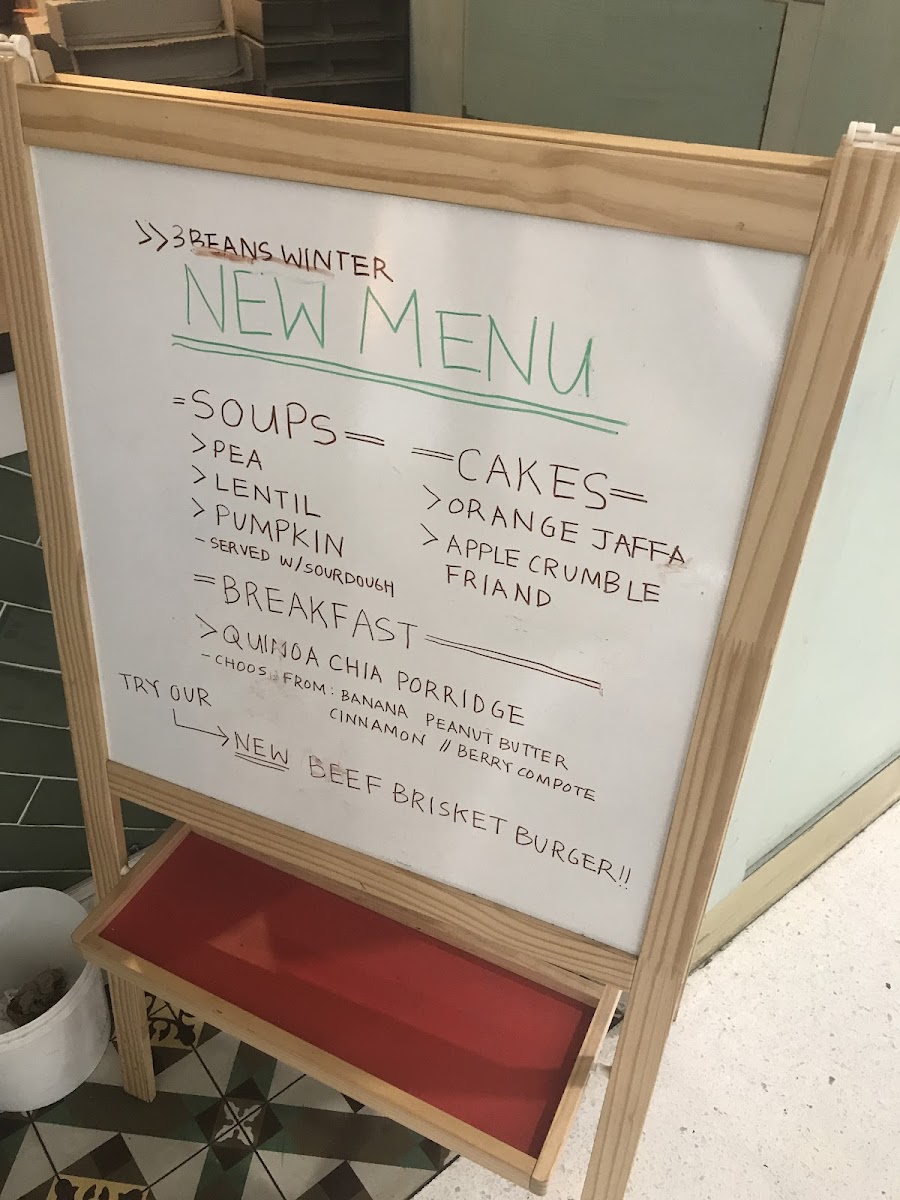 >>3BEANS WINTER
NEW MENU
=SOUPS=
>PEA
>LENTIL
>PUMPKIN
-SERVED W/SOURDOUGH
=CAKES=
>ORANGE JAFFA
>APPLE CRUMBLE
FRIAND
=BREAKFAST=
>QUINOA CHIA PORRIDGE
-CHOOS FROM: BANANA PEANUT BUTTER
CINNAMON // BERRY COMPOTE
TRY OUR
NEW BEEF BRISKET BURGER!!